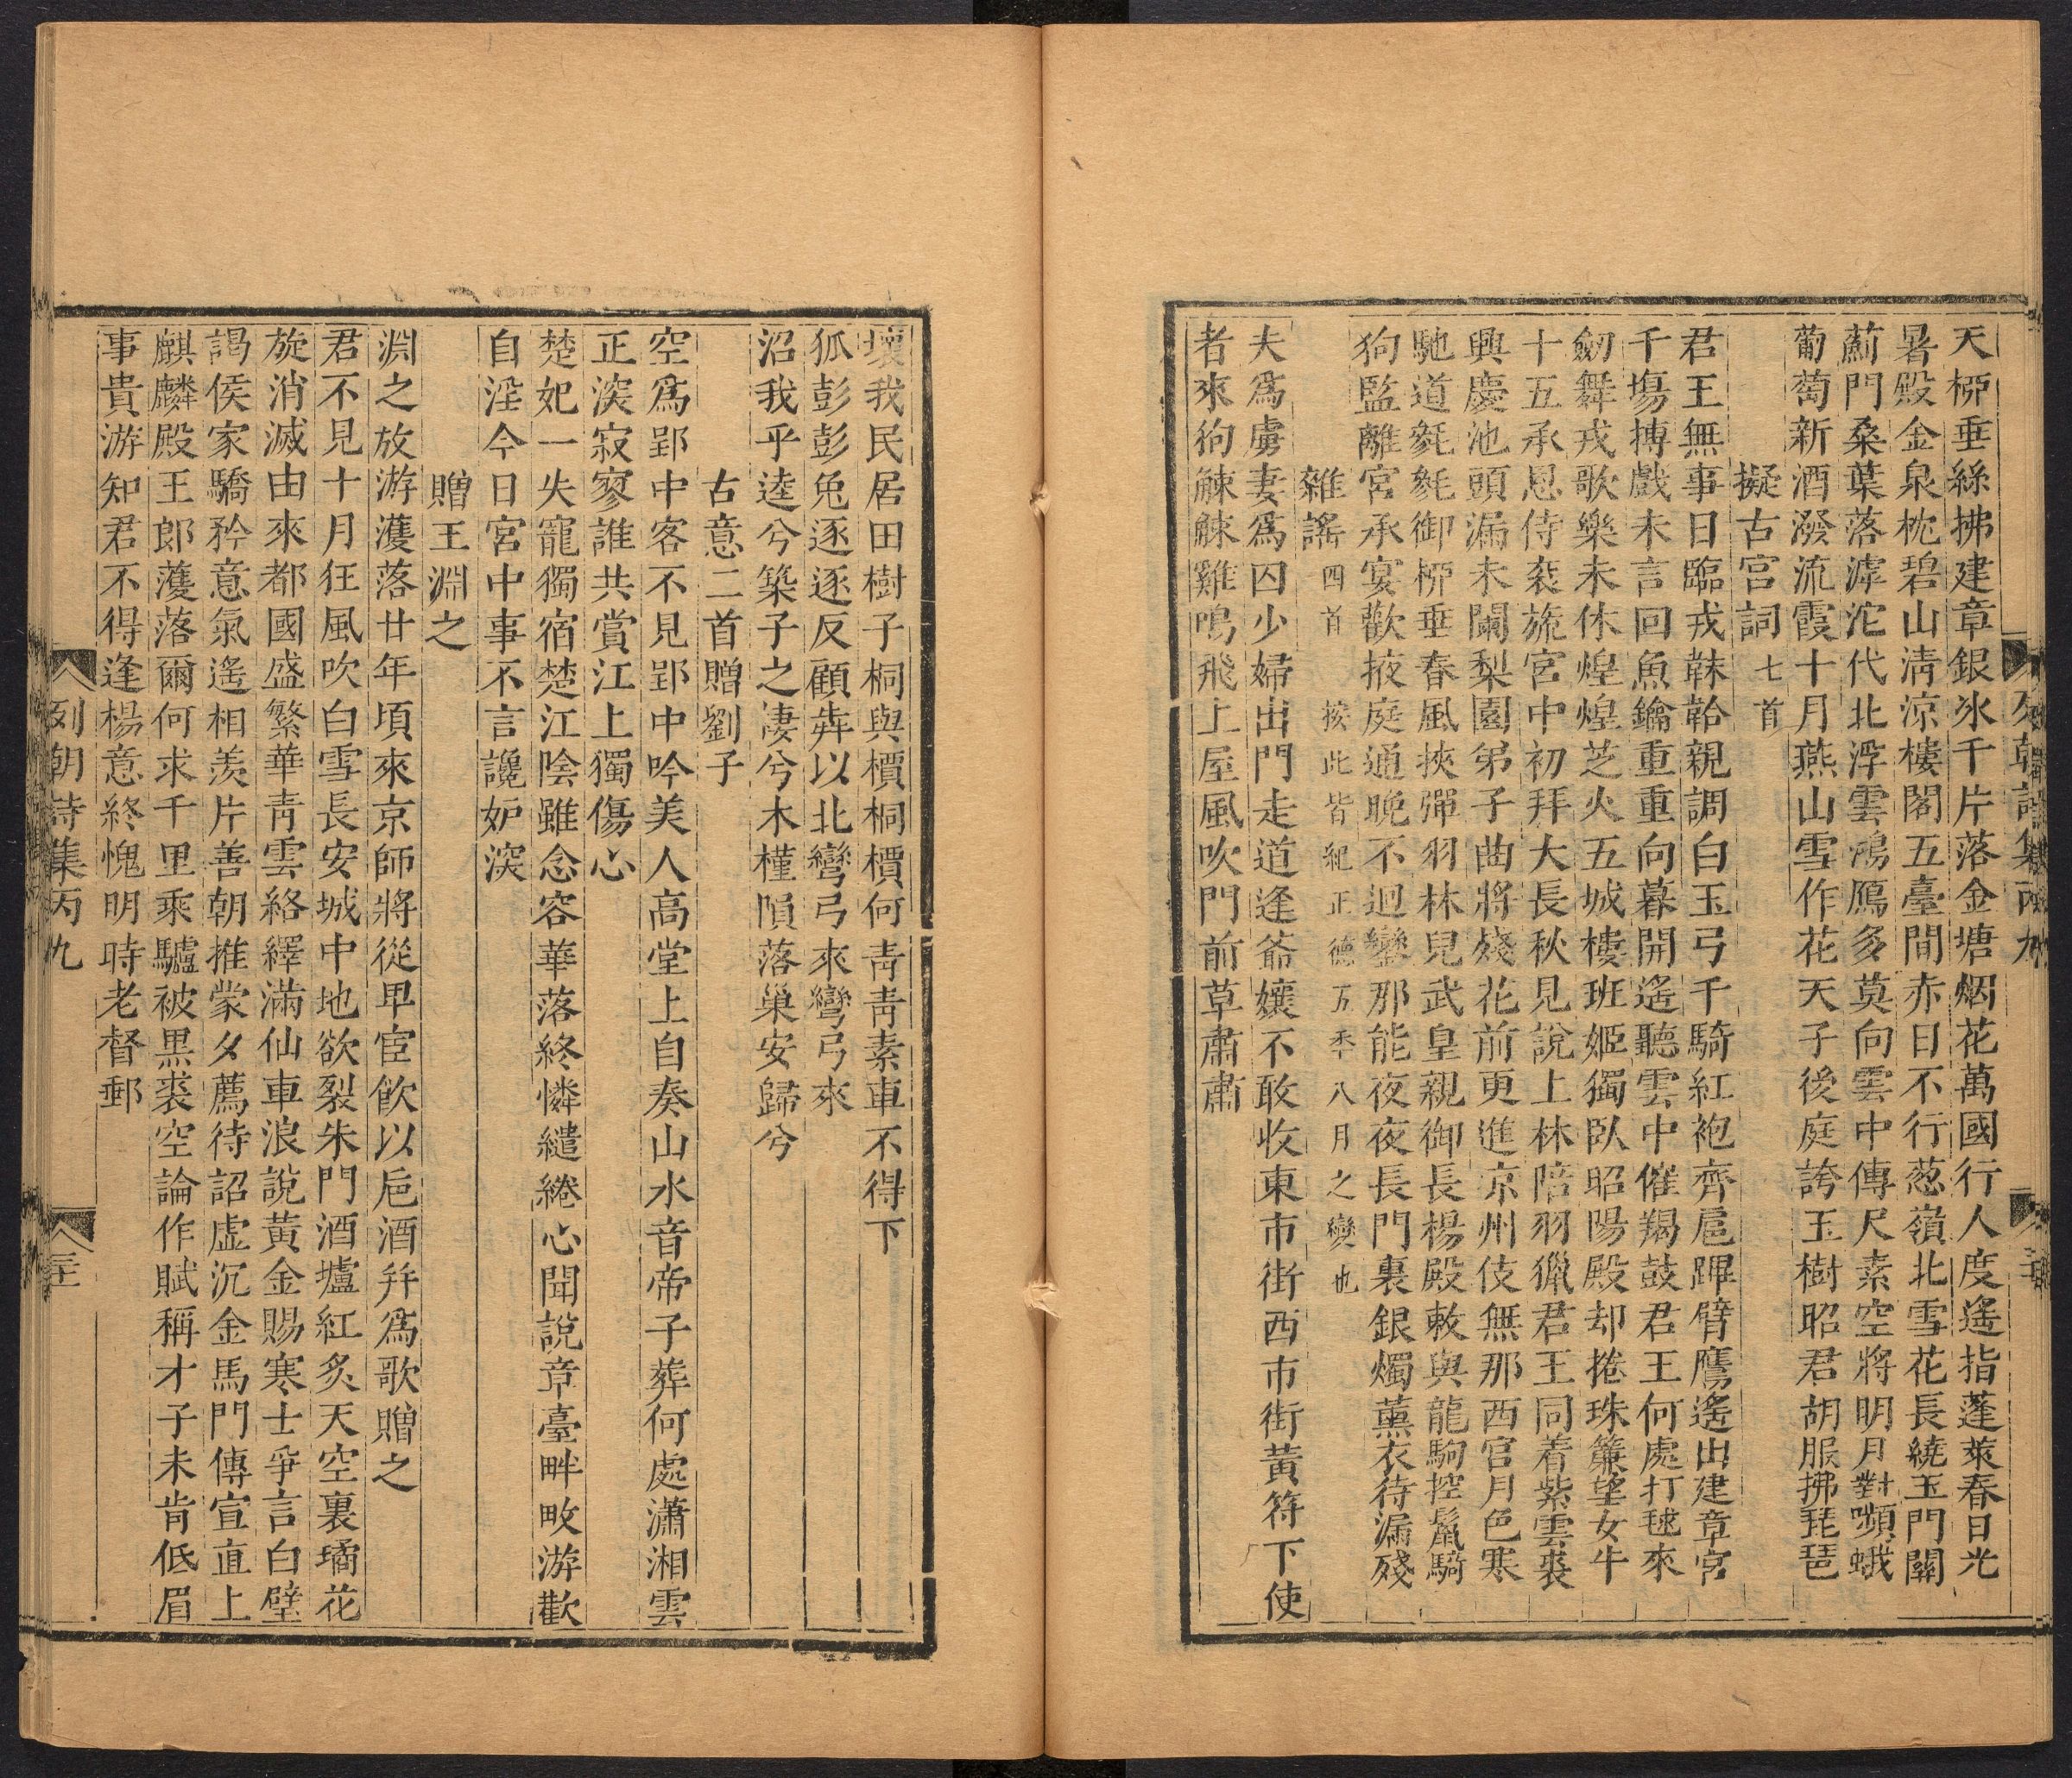 天桺垂絲拂建章銀氷千片落金塘烟花萬國行人度遙指蓬萊春日光
暑殿金泉枕碧山淸涼樓閣五臺間赤日不行葱嶺北雪花長繞玉門關
薊門桑葉落滹沱代北浮雲鴻鴈多莫向雲中傳尺素空將明月對嚬蛾
葡萄新酒潑流霞十月燕山雪作花天子後庭誇玉樹昭君胡服拂琵琶
擬古宮詞七首
君王無事日臨戎韎韐親調白玉弓千騎紅袍齊扈蹕臂鷹遙出建章宮
千塲摶戲未言回魚鑰重重向暮開遙聽雲中催羯鼓君王何處打毬來
劒舞戎歌樂未休煌煌芝火五城樓班姬獨臥昭陽殿却捲珠簾望女牛
十五承恩侍衮旒宮中初拜大長秋見說上林陪羽獵君王同着紫雲裘
興慶池頭漏未闌梨園弟子曲將殘花前更進京州伎無那西宮月色寒
馳道毵毵御桺垂春風挾彈羽林兒武皇親御長楊殿敕與龍駒控鬣騎
狗監離宮承宴歡掖庭通晚不迴鑾那能夜夜長門裏銀燭薰衣待漏殘
雜謠四首 按此皆紀正德五年八月之變也
夫爲虜妻爲囚少婦出門走道逢爺孃不敢收東市街西市街黃符下使
者來狗觫觫雞鳴飛上屋風吹門前草肅肅
列朝詩集丙九
壞我民居田樹子桐與檟桐檟何靑靑素車不得下
狐彭彭兔逐逐反顧犇以北彎弓來彎弓來
沼我乎逵兮築子之凄兮木槿隕落巢安歸兮
古意二首贈劉子
空爲郢中客不見郢中吟美人高堂上自奏山水音帝子葬何處瀟湘雲
正深寂寥誰共賞江上獨傷心
楚妃一失寵獨宿楚江陰雖念容華落終憐繾綣心聞說章臺畔畋游歡
自淫今日宮中事不言讒妒深
贈王淵之
淵之放游濩落廿年頃來京師將從甲宦飮以巵酒并爲歌贈之
君不見十月狂風吹白雪長安城中地欲裂朱門酒壚紅炙天空裏璚花
旋消滅由來都國盛繁華靑雲絡繹滿仙車浪說黃金賜寒士爭言白璧
謁侯家驕矜意氣遙相羨片善朝推蒙夕薦待詔虛沉金馬門傳宣直上
麒麟殿王郎濩落爾何求千里乘驢被黑裘空論作賦稱才子未肯低眉
事貴游知君不得逢楊意終愧明時老督郵
列朝詩集丙九